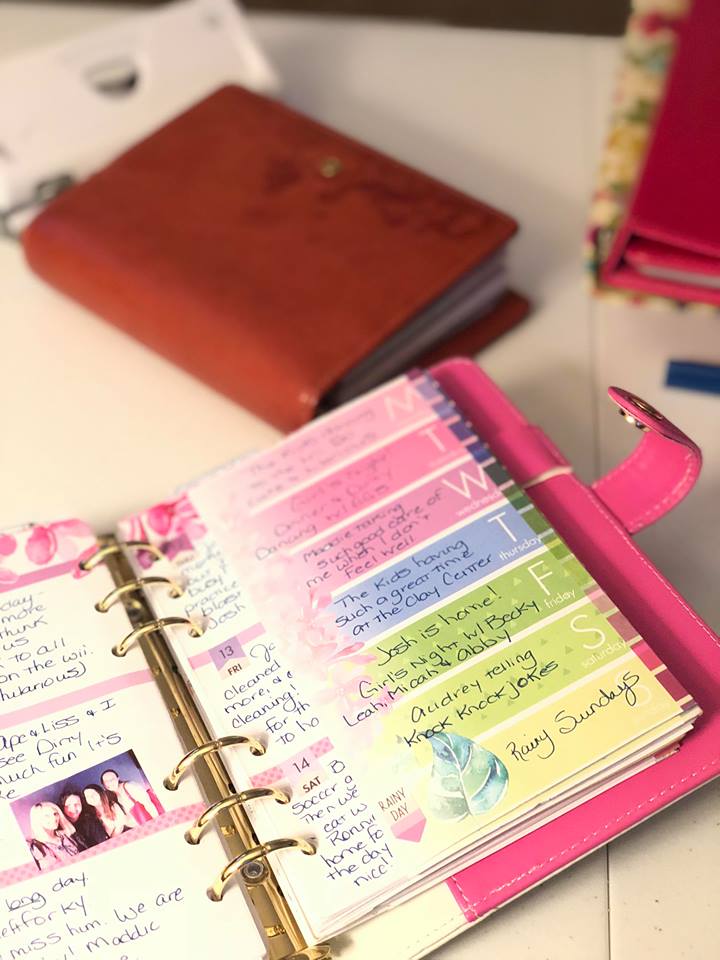 day-
more
think
us
to all
on the wii.
hularious)
ape & Liss & I
see Dirty
much fun it's
re
long day.
left for KY
miss him. We are
Maddie
practice
Josh
13
FRI
cleaned
more, &
cleaning!
for th
to ho
14
SAT
B
Soccer a
Then we
eat w
Ronni
home fo
the day
nice!
M
The Kids having
T
Dinner &
Dancing
W
wednesday
Maddie taking
such good care of
me when I don't
Feel well
T
thursday
The Kids having
such a great time
at the Clay Center
F
friday
Josh is home!
Girls Night w/ Becky
Leah, Micah & Abby
S
saturday
Audrey telling
Knock Knock Jokes
S
Rainy Sundays
RAINY
DAY